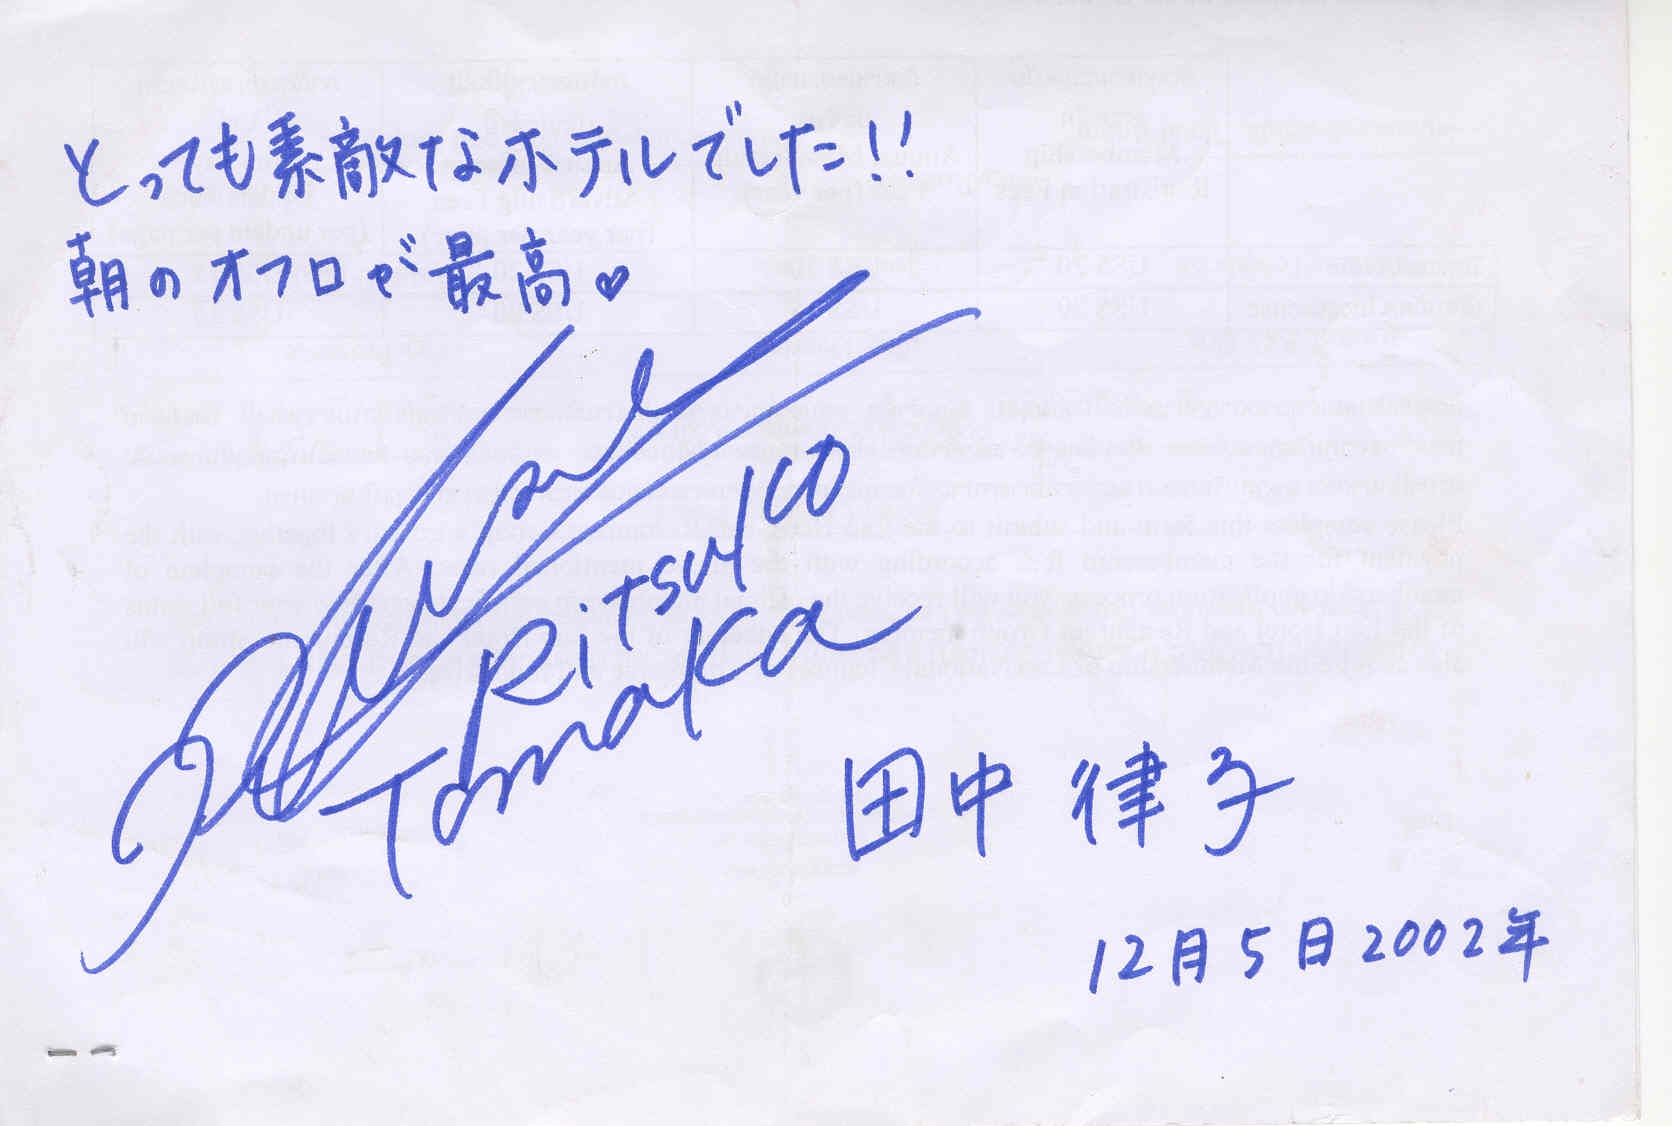 とっても素敵なホテルでした!!
朝のオフロが最高♡
Ritsuko
Tanaka
田中 律子
12月5日2002年